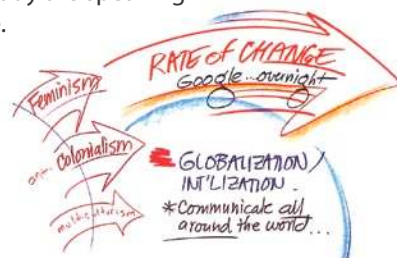 RATE of CHANGE
Google...overnight
Feminism
Colonialism
multiculturism
GLOBALIZATION /
INT'LIZATION.
*Communicate all
around the world...